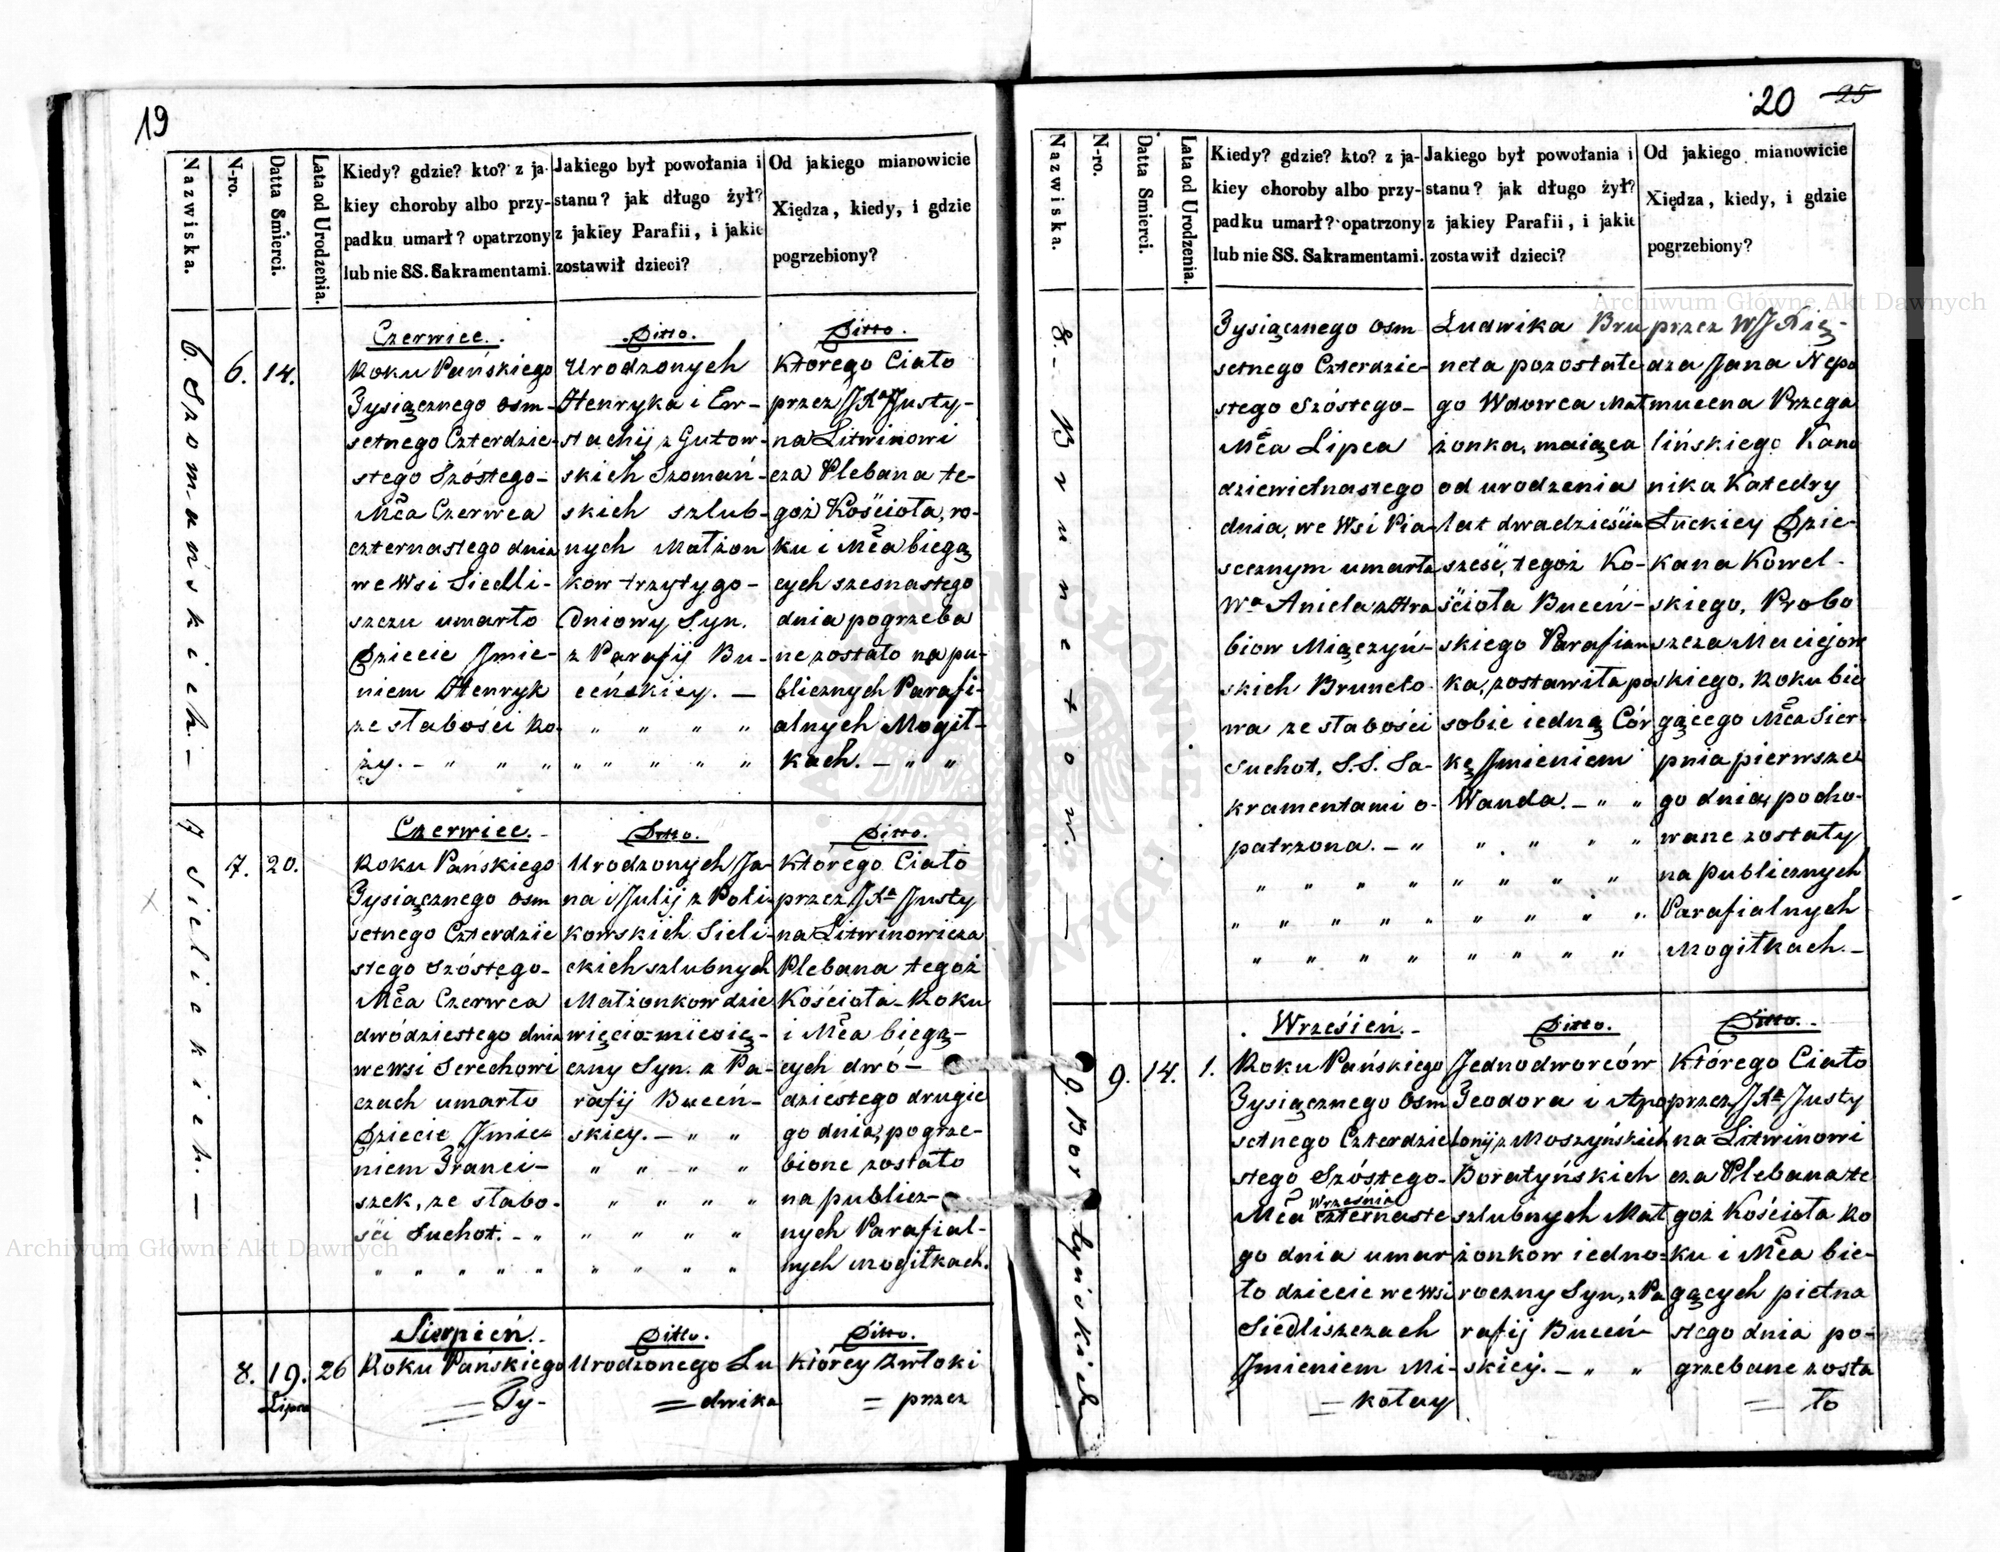 19
Nazwiska.
N-ro.
Datta Smierci.
Lata od Urodzenia.
Kiedy? gdzie? kto? z ja-
kiey choroby albo przy-
padku umarł? opatrzony
lub nie SS. Sakramentami.
Jakiego był powołania i
stanu? jak długo żył?
z jakiey Parafii, i jakie
zostawił dzieci?
Od jakiego mianowicie
Xiędza, kiedy, i gdzie
pogrzebiony?
6. Szomańskich —
6.
14.
Czerwiec.
Roku Pańskiego
Tysiącznego osm-
setnego Czterdzie-
stego Szóstego-
Mca Czerwca
czternastego dnia
we Wsi Siedli-
szczu umarło
Dziecie Jmie-
niem Henryk
ze słabości Ko-
zy. — „ „ „
Ditto.
Urodzonych
Henryka i Ew-
stachij z Gutow-
skich Szomań-
skich szlub-
nych Małżon
kow trzytygo-
dniowy Syn.
z Parafij Bu-
ceńskiey. —
„ „ „ „
„ „ „ „ „
Ditto.
Ktorego Ciało
przez JXa Justy-
na Litwinowi
cza Plebana te-
goż Kościoła, ro-
ku i Mca biegą
cych szesnastego
dnia pogrzeba
ne zostało na pu-
blicznych Parafi-
alnych Mogił-
kach. — „ „
7 Sielickich. —
7.
20.
Czerwiec.
Roku Pańskiego
Tysiącznego osm
setnego Czterdzie
stego Szóstego-
Mca Czerwca
dwódziestego dnia
we Wsi Serechowi
czach umarło
Dziecie Jmie-
niem Franci-
szek, ze słabo-
ści Suchot. — „
„ „ „ „ „
Ditto.
Urodzonych Ja-
na i Julij z Poli-
kowskich Sieli-
ckich szlubnych
Małżonkow dzie
więcio-miesię-
czny Syn. z Pa-
rafij Buceń-
skiey. — „ „
„ „ „ „
„ „ „ „
„ „ „ „
„ „ „ „
Ditto.
Którego Ciało
przez JXa Justy
na Litwinowicza
Plebana tegoż
Kościoła Roku
i Mca biegą-
cych dwó-
dziestego drugie
go dnia, pogrze-
bione zostało
na publicz-
nych Parafial-
nych Mogiłkach.
8.
19.
Lipca
26
Sierpień.
Roku Pańskiego
= Ty-
Ditto.
Urodzonego Lu
= dwika
Ditto.
Którey Zwłoki
= przez
20 25
Nazwiska.
N-ro.
Datta Smierci.
Lata od Urodzenia.
Kiedy? gdzie? kto? z ja-
kiey choroby albo przy-
padku umarł? opatrzony
lub nie SS. Sakramentami.
Jakiego był powołania i
stanu? jak długo żył?
z jakiey Parafii, i jakie
zostawił dzieci?
Od jakiego mianowicie
Xiędza, kiedy, i gdzie
pogrzebiony?
8 — Brunetow. —
Tysiącznego osm
setnego Czterdzie-
stego Szóstego-
Mca Lipca
dziewietnastego
dnia, we Wsi Pia-
secznym umarła
Wa Aniela z Hra
biow Miączyń-
skich Bruneto-
wa ze słabości
Suchot, S.S. Sa-
kramentami o-
patrzona. — „
„ „ „ „
„ „ „ „ „
„ „ „ „
Ludwika Bru
neta pozostałe-
go Wdowca Mał
żonka, maiąca
od urodzenia
lat dwadzieścia
sześć, tegoż Ko-
ścioła Buceń-
skiego Parafian
ka, zostawiła po
sobie iedną Cór
kę Jmieniem
Wanda. — „ „
„ „ „ „
„ „ „ „
„ „ „ „
„ „ „ „
przez WJ Xię-
dza Jana Nepo
mucena Przega
lińskiego Kano
nika Katedry
Łuckiey Dzie-
kana Kowel-
skiego, Probo
szcza Maciejow
skiego, Roku bie
gącego Mca Sier-
pnia pierwsze
go dnia, pocho-
wane zostały
na publicznych
Parafialnych
Mogiłkach. —
9. Boratyńskich
9.
14.
1.
Wrzesień. —
Roku Pańskiego
Tysiącznego Osm
setnego Czterdzie
stego Szóstego-
Września
Mca czternaste
go dnia umar
ło dziecie we Wsi
Siedliszczach
Jmieniem Mi-
= kołay
Ditto.
Jednodworców
Teodora i Apo
lonij z Moszyńskich
Boratyńskich
szlubnych Mał
żonkow iedno-
roczny Syn, z Pa
rafij Buceń-
skiej. — „ „
Ditto.
Którego Ciało
przez JXa Justy
na Litwinowi
cza Plebana te
goż Kościoła Ro
ku i Mca bie-
gących pietna
stego dnia po-
grzebane zosta
= ło
Archiwum Główne Akt Dawnych
Archiwum Główne Akt Dawnych